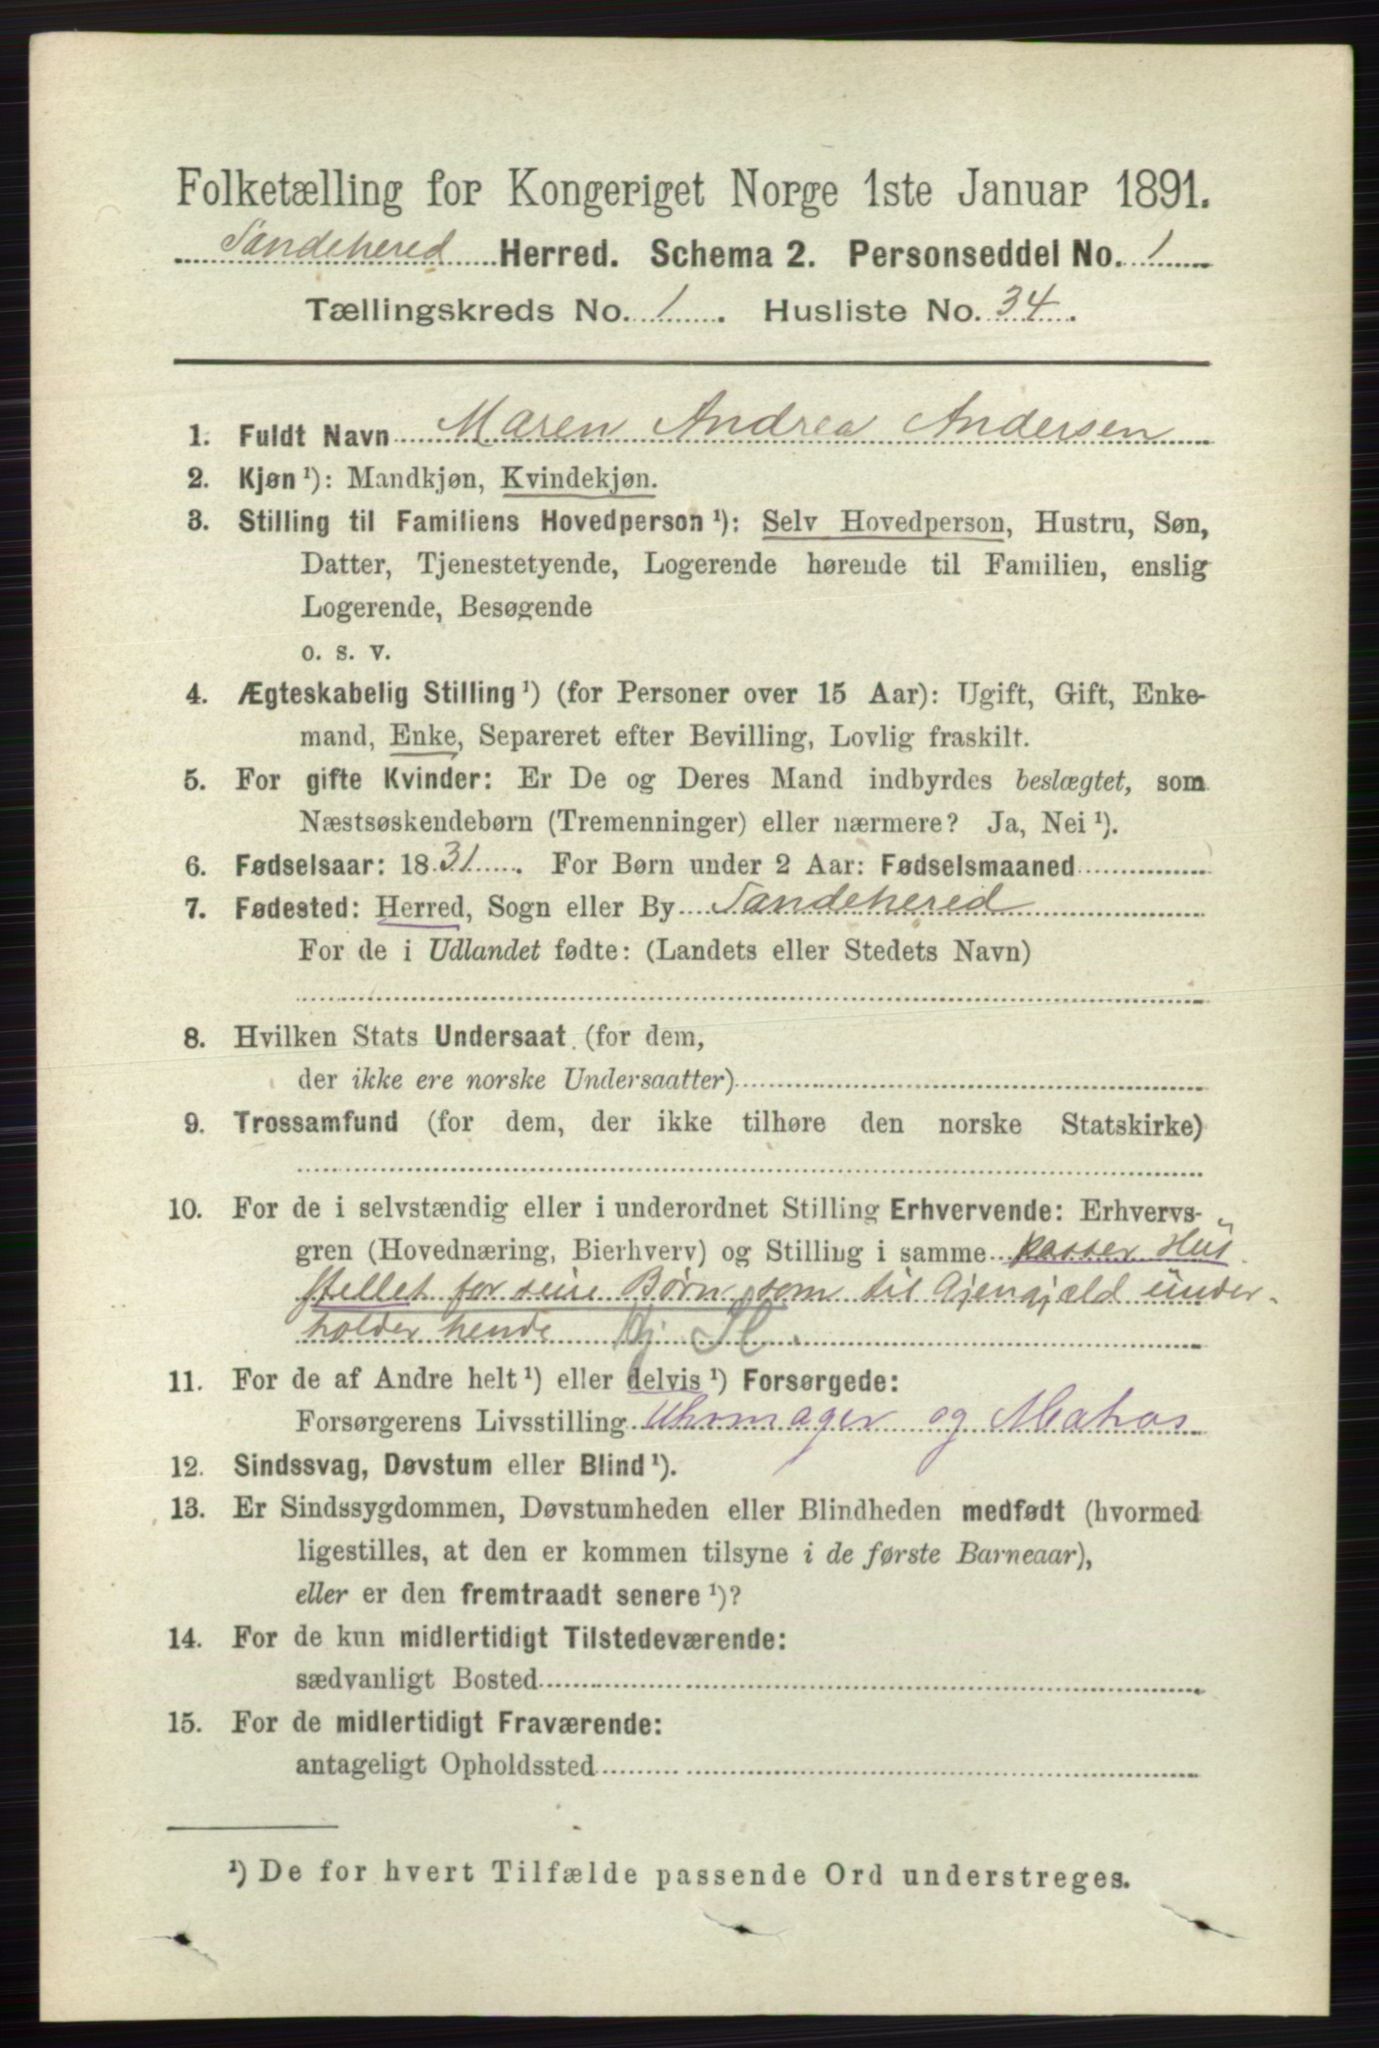 Folketælling for Kongeriget Norge 1ste Januar 1891.
Sandehered Herred. Schema 2. Personseddel No. 1
Tællingskreds No. 1. Husliste No. 34.
1. Fuldt Navn Maren Andrea Andersen
2. Kjøn ¹): Mandkjøn, Kvindekjøn.
3. Stilling til Familiens Hovedperson ¹): Selv Hovedperson, Hustru, Søn,
Datter, Tjenestetyende, Logerende hørende til Familien, enslig
Logerende, Besøgende
o. s. v.
4. Ægteskabelig Stilling ¹) (for Personer over 15 Aar): Ugift, Gift, Enke-
mand, Enke, Separeret efter Bevilling, Lovlig fraskilt.
5. For gifte Kvinder: Er De og Deres Mand indbyrdes beslægtet, som
Næstsøskendebørn (Tremenninger) eller nærmere? Ja, Nei ¹).
6. Fødselsaar: 1831. For Børn under 2 Aar: Fødselsmaaned
7. Fødested: Herred, Sogn eller By Sandehered
For de i Udlandet fødte: (Landets eller Stedets Navn)
8. Hvilken Stats Undersaat (for dem,
der ikke ere norske Undersaatter)
9. Trossamfund (for dem, der ikke tilhøre den norske Statskirke)
10. For de i selvstændig eller i underordnet Stilling Erhvervende: Erhvervs-
gren (Hovednæring, Bierhverv) og Stilling i samme passer Hus
stellet for sine Børn, som til Gjengjæld under-
holder hende
11. For de af Andre helt ¹) eller delvis ¹) Forsørgede:
Forsørgerens Livsstilling Uhrmager og Matros
12. Sindssvag, Døvstum eller Blind ¹).
13. Er Sindssygdommen, Døvstumheden eller Blindheden medfødt (hvormed
ligestilles, at den er kommen tilsyne i de første Barneaar),
eller er den fremtraadt senere ¹)?
14. For de kun midlertidigt Tilstedeværende:
sædvanligt Bosted
15. For de midlertidigt Fraværende:
antageligt Opholdssted
¹) De for hvert Tilfælde passende Ord understreges.